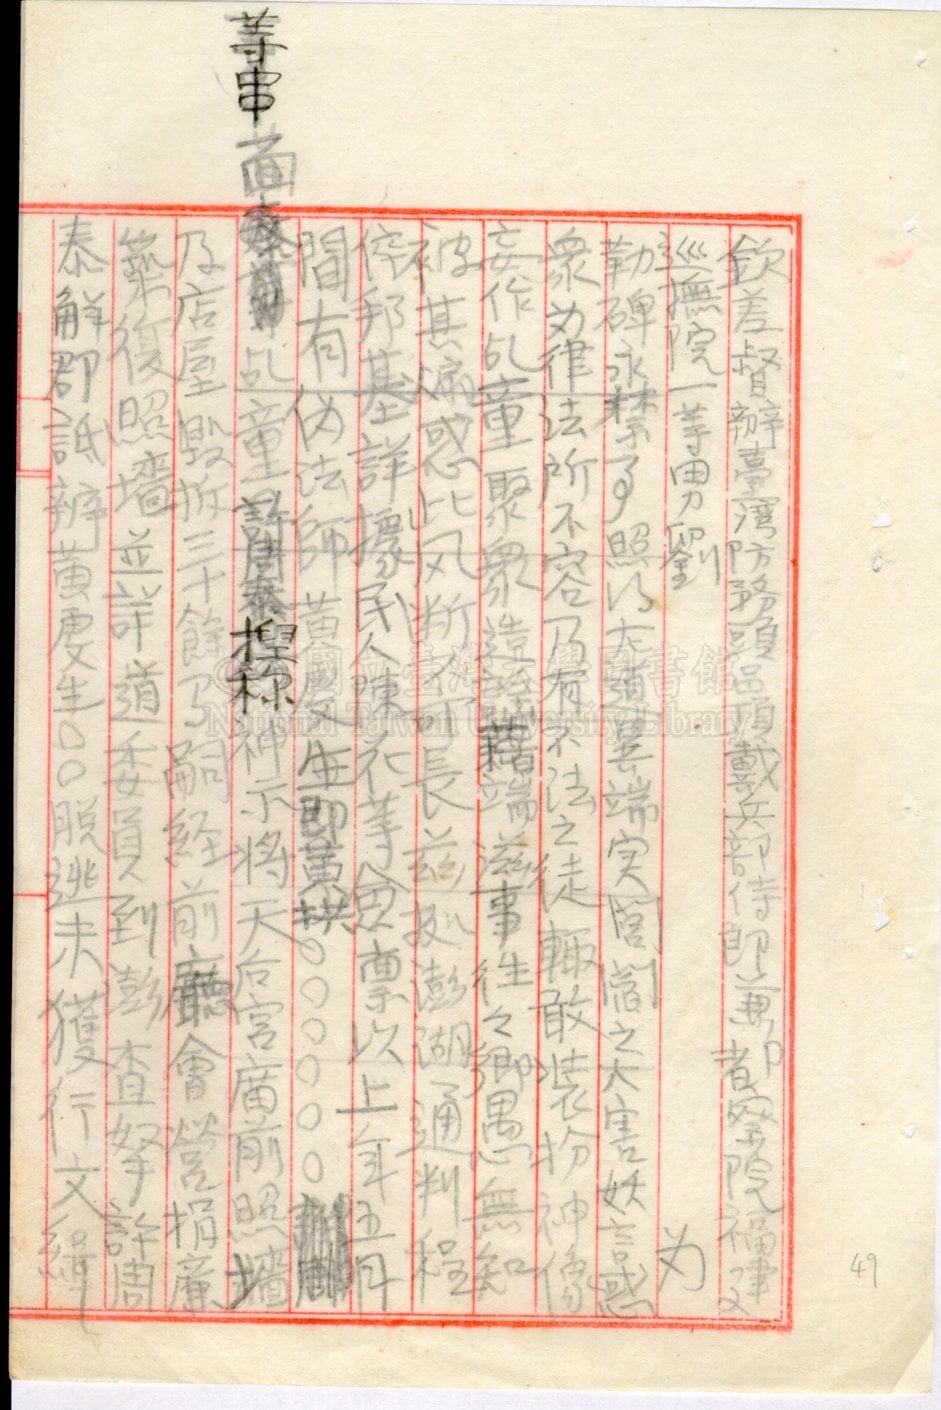 欽差督辦臺灣防務頭品頂戴兵部侍郎兼都察院福建
巡撫院一等男劉 為
勒碑永禁事照得左道異端实閭閻之大害妖言惑
眾为律法所不容乃有不法之徒輒敢裝扮神像
妄作乩童聚眾造謠藉端滋事往々鄉愚無知
被其煽惑此风断不可長茲據澎湖通判程
倅邦基詳據民人陳 等僉稟以上年五月
間有伪法師黄慶生即黄拱○○○○○
等串乩童捏称神示将天后宮廟前照墻
及店屋毀拆三十餘 嗣経前廳會營捐廉
築復照墻並詳道委員到澎查拏許周
泰解郡訊辦黄慶生○○脱逃未獲行文緝
49
國立臺灣大學圖書館
National Taiwan University Library